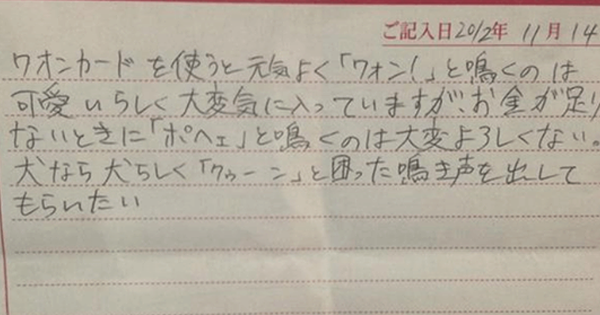 ご記入日2012年 11月14
ワオンカードを使うと元気よく「ワォン!」と鳴くのは
可愛いらしく大変気に入っていますが、お金が足り
ないときに「ポヘェ」と鳴くのは大変よろしくない。
犬なら犬らしく「クゥーン」と困った鳴き声を出して
もらいたい